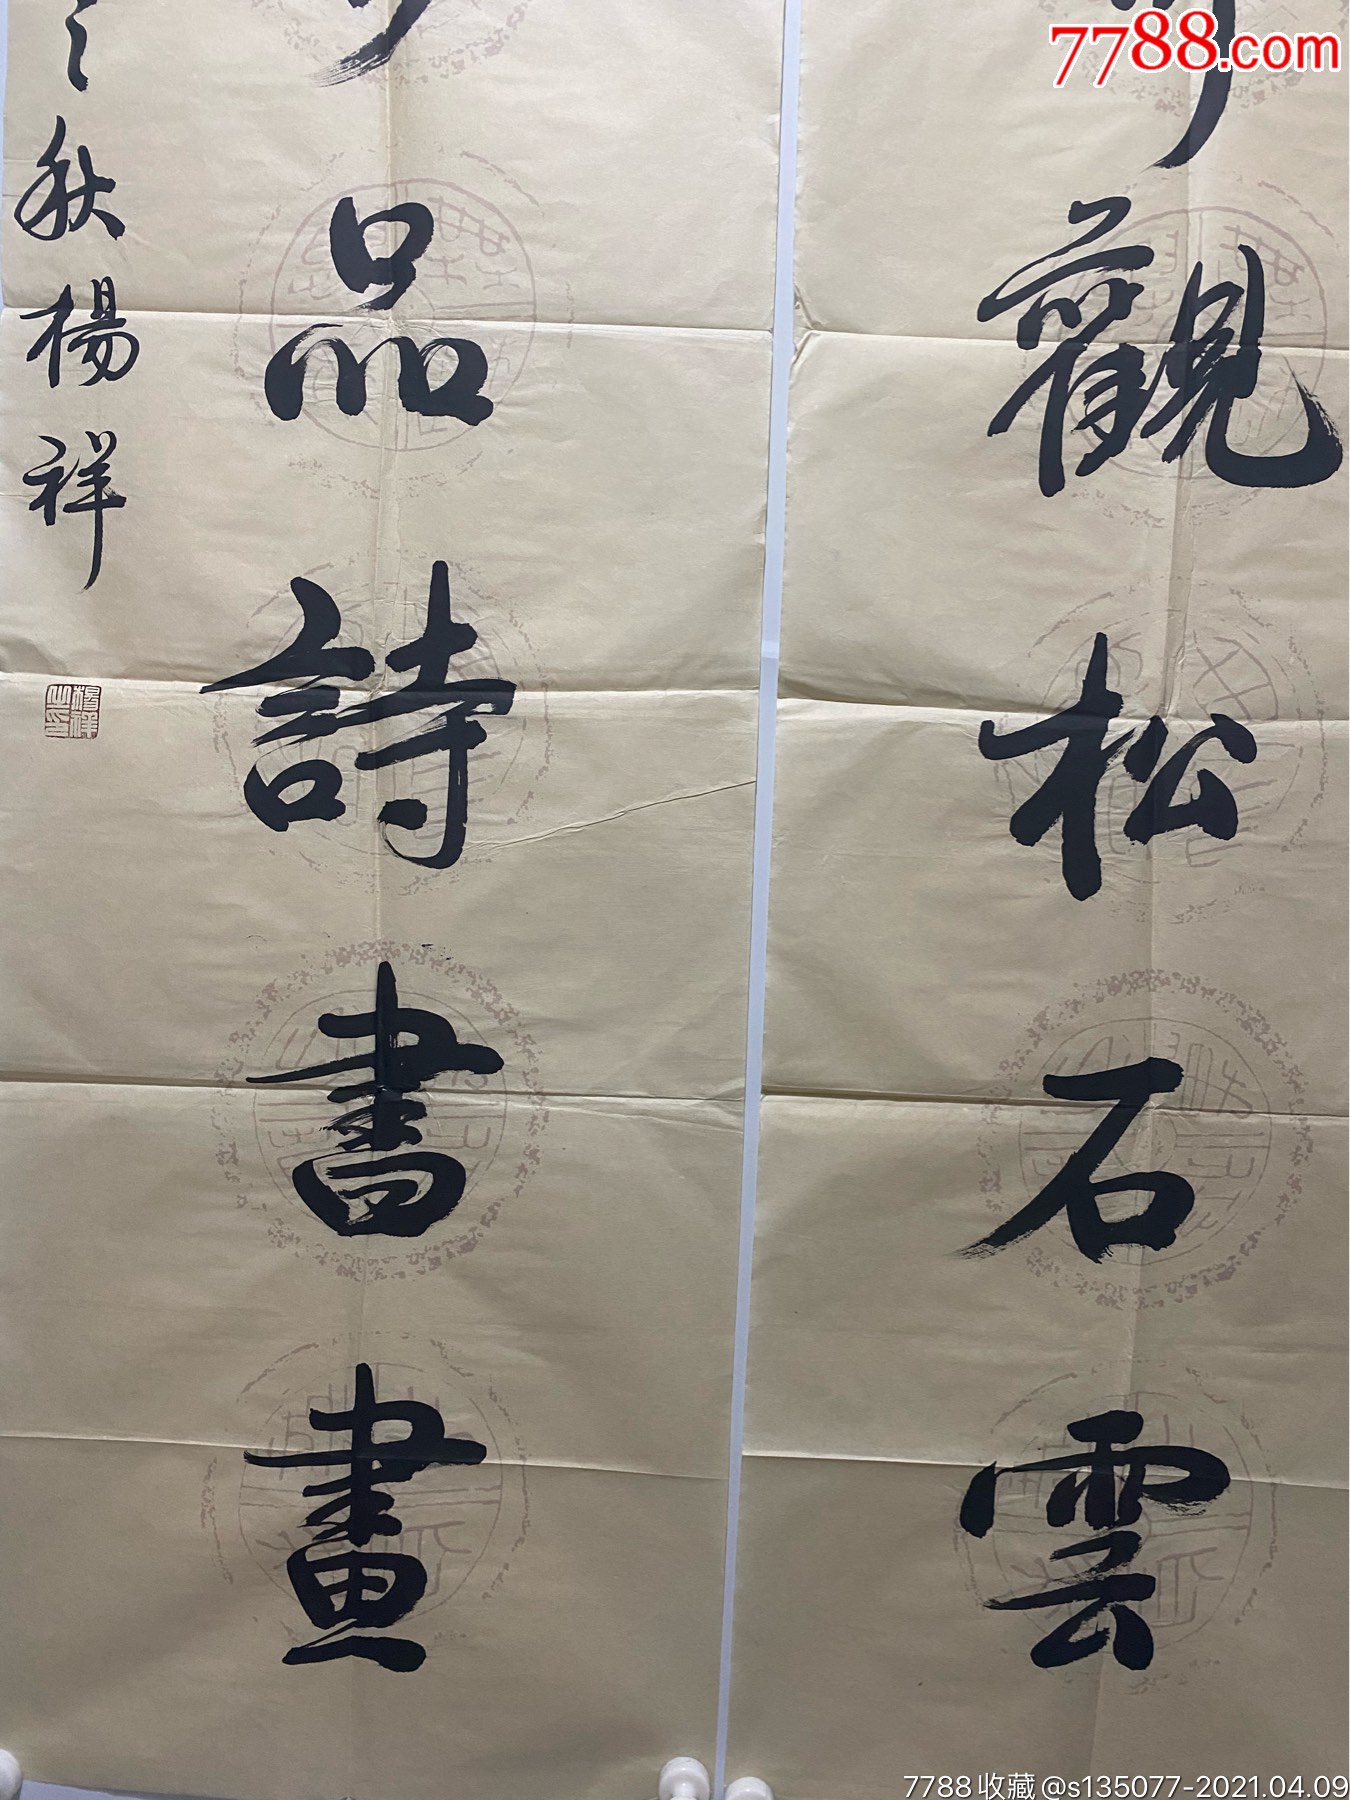 7788.com
觀松石雲
品詩書畫
之秋楊祥
楊祥之印
7788收藏@s135077-2021.04.09